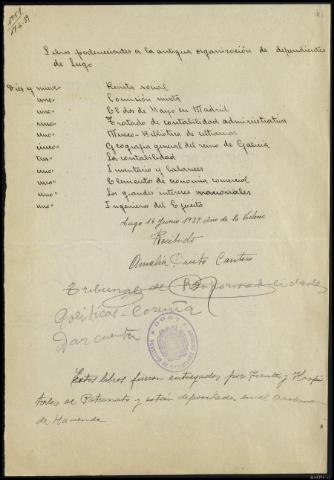 Libros pertenecientes a la antigua organización de dependientes
de Lugo
Diez y nueve Revista social
uno= Comisión mixta
uno= El dos de Mayo en Madrid
uno= Tratado de contabilidad administrativa
uno= Museo-Biblioteca de ultramar
cinco= Geografia general del reino de Galicia
tres= La contabilidad
uno= Inventario y balances
uno= Elementos de economia comercial
uno= Los grandes intereses nacionales
uno= Ingenieros del Ejercito
Lugo 16 Junio 1939. Año de la Victoria
Recibido
Amalia Prieto Cantero
Tribunal de Responsabilidades
Políticas-Coruña
Dar cuenta
Estos libros fueron entregados por Frentes y Hospi
tales al Patronato y están depositados en el
de Hacienda